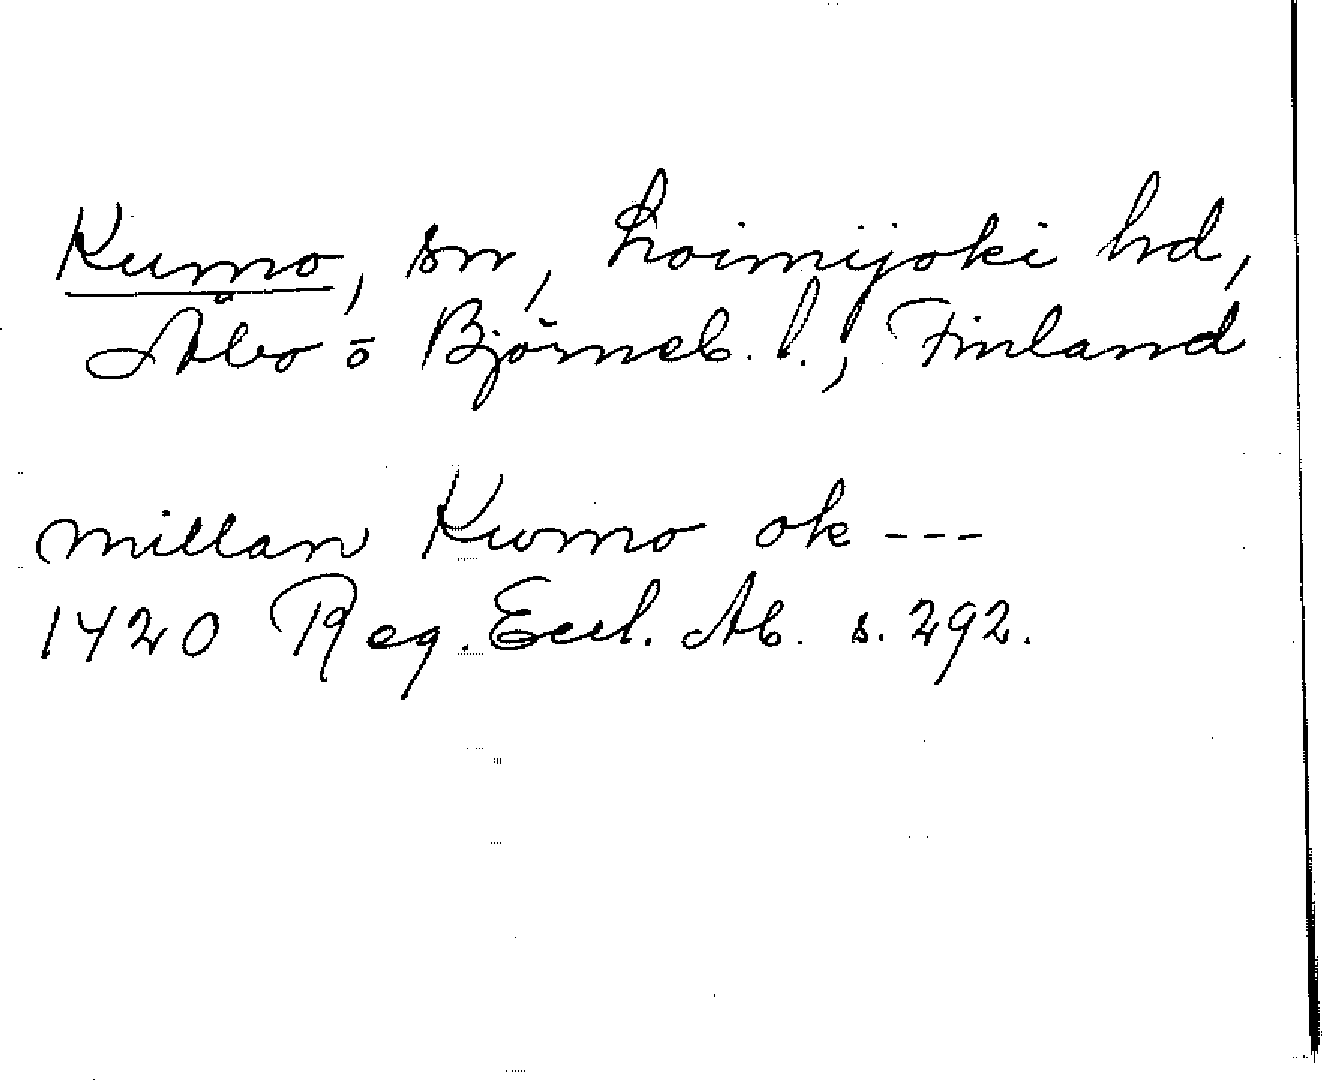 Kumo, sn, Loimijoki hd,
Åbo o Björneb. l., Finland
millan Kwmo ok ---
1420 Reg. Eccl. Ab. s. 292.